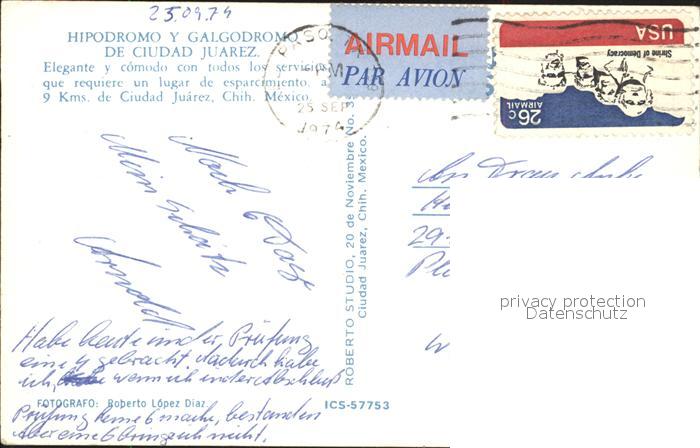 25.09.74
HIPODROMO Y GALGODROMO
DE CIUDAD JUAREZ.
Elegante y cómodo con todos los servicios
que requiere un lugar de esparcimiento, a
9 Kms. de Ciudad Juárez, Chih. México.
PASO
PM
25 SEP
1974
AIRMAIL
PAR AVION
USA
Shrine of Democracy
26c
AIRMAIL
Noch 6 Tage
Mein Schatz
Arnold
Habe heute in der Prüfung
eine 4 gebracht. Dadurch habe
ich, wenn ich in der Abschluß
Prüfung keine 6 mache, bestanden
Aber eine 6 bring ich nicht.
FOTOGRAFO: Roberto López Díaz.
ICS-57753
ROBERTO STUDIO, 20 de Noviembre No. 3
Ciudad Juarez, Chih. Mexico.
29
privacy protection
Datenschutz